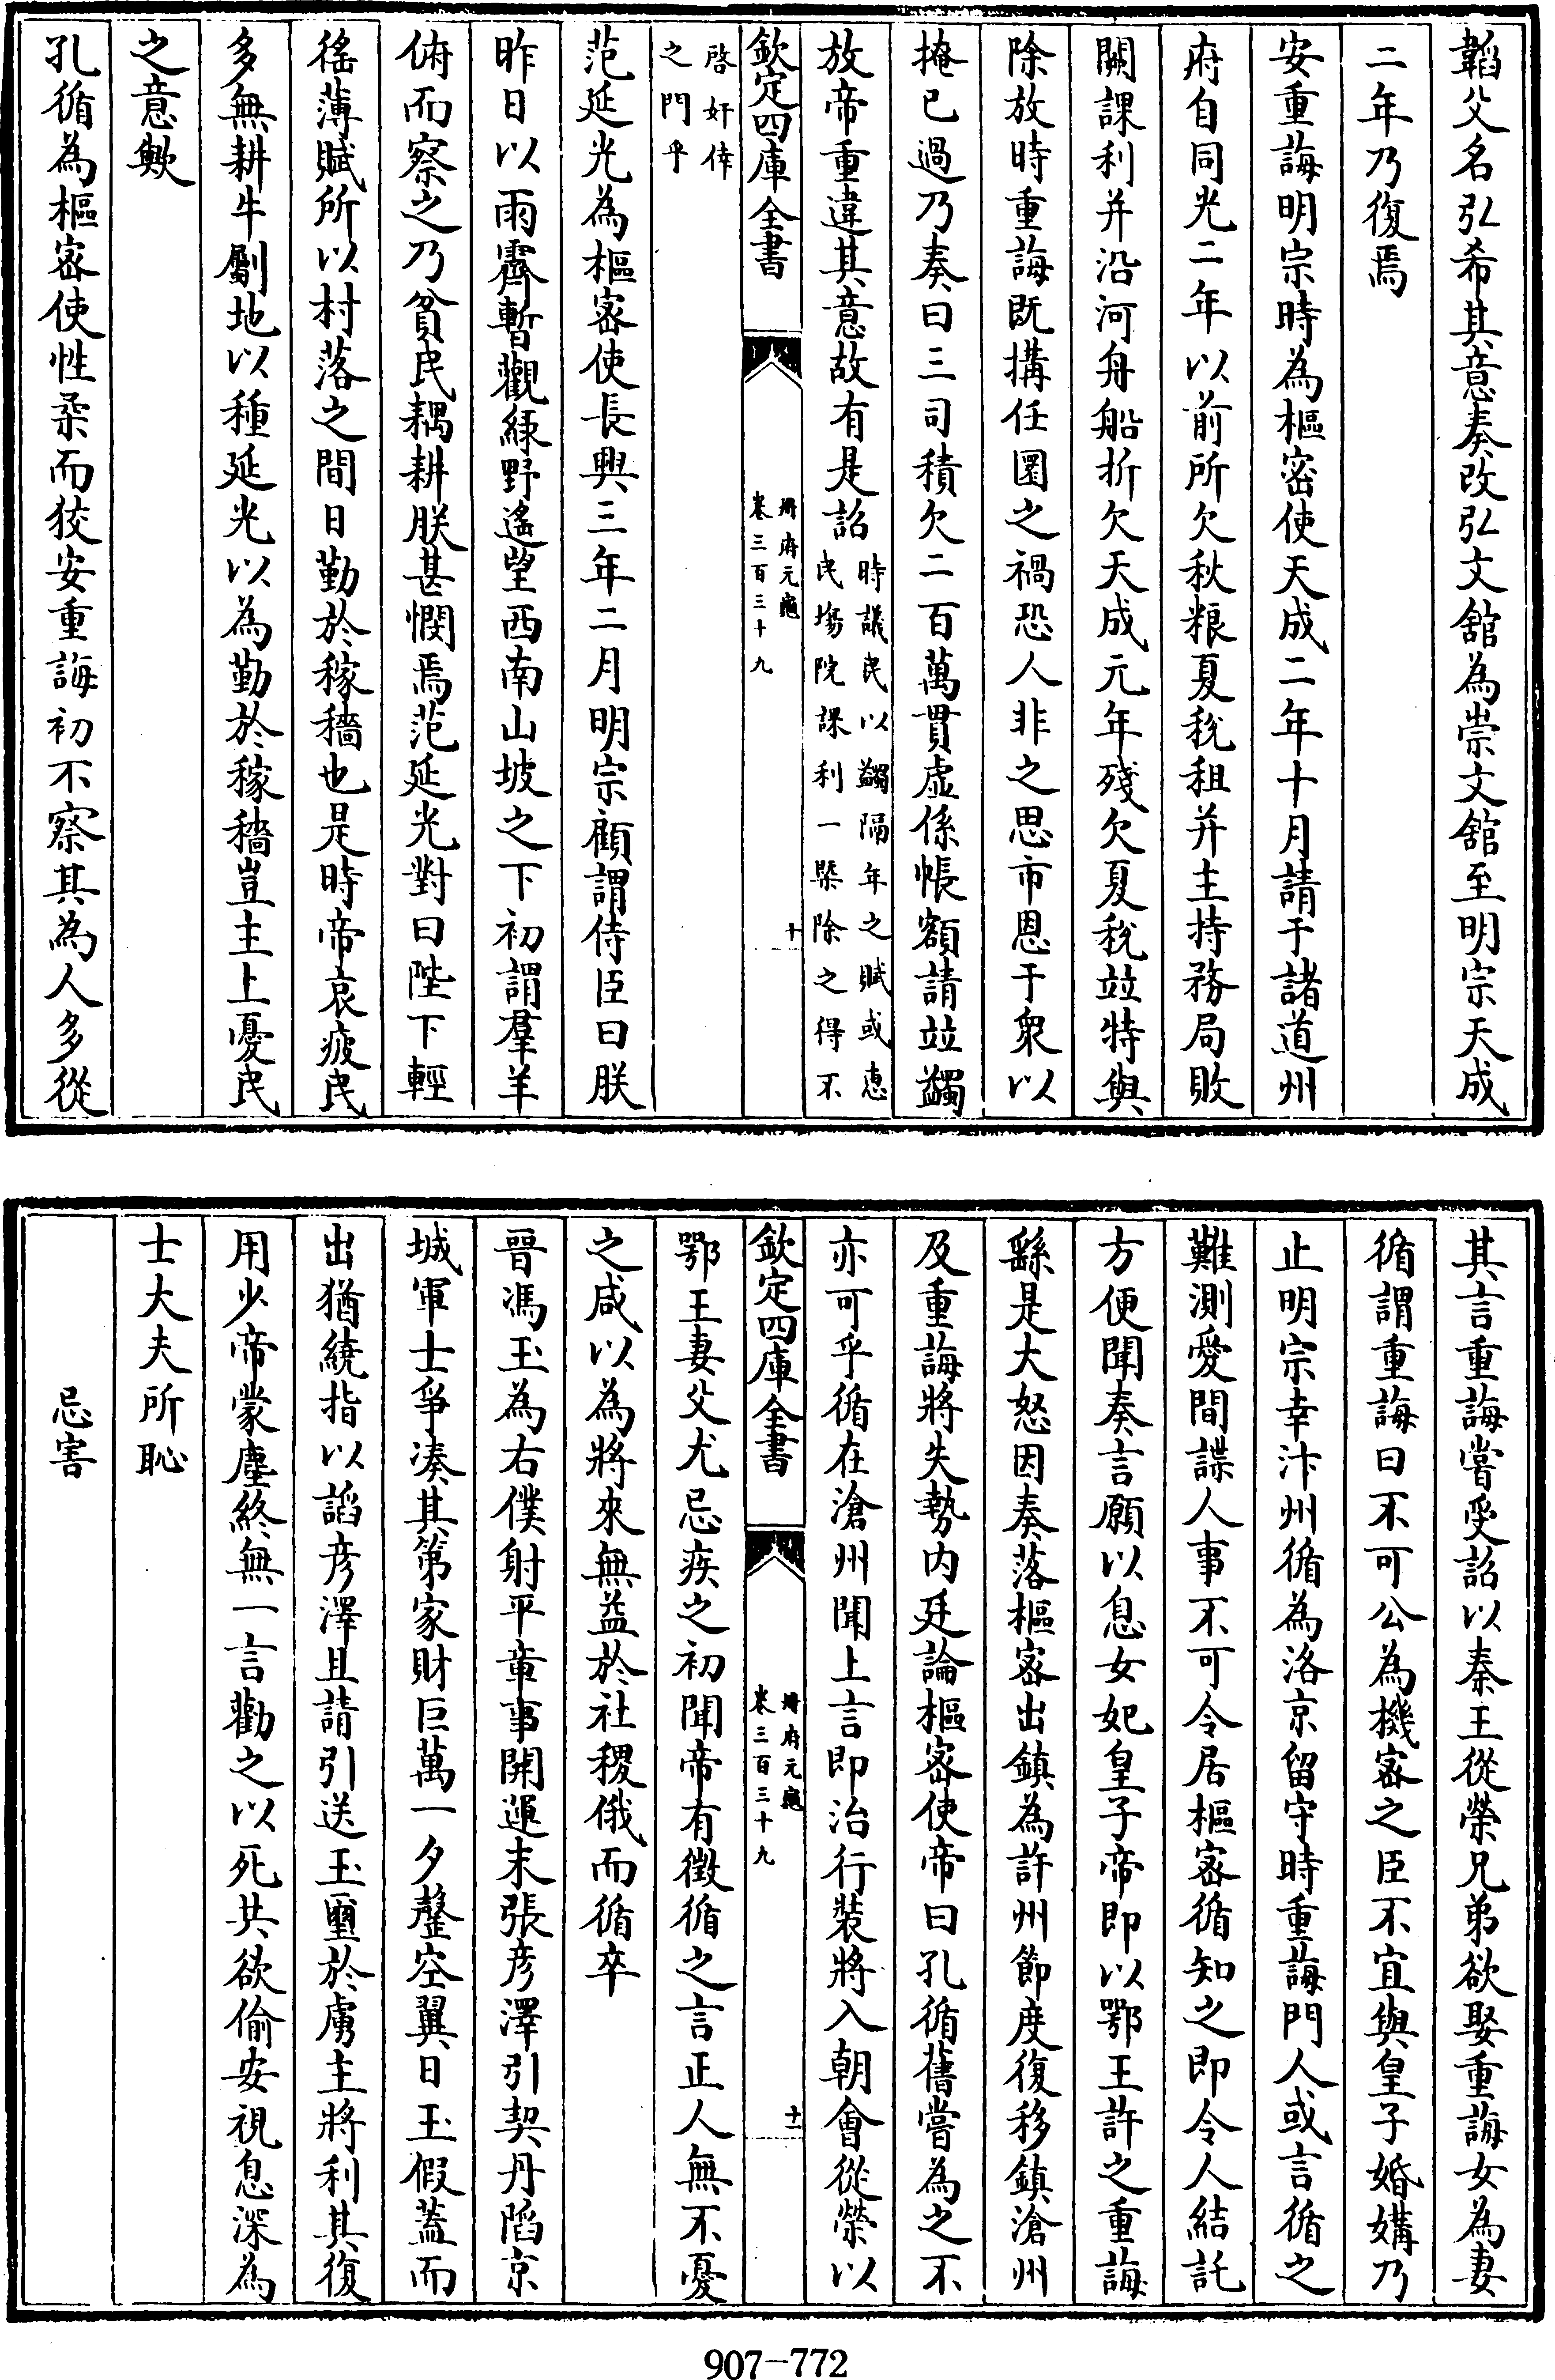 韜父名弘希其意奏改弘文舘為崇文舘至明宗天成
二年乃復焉
安重誨明宗時為樞密使天成二年十月請于諸道州
府自同光二年以前所欠秋粮夏稅租并主持務局敗
闕課利并沿河舟船折欠天成元年殘欠夏稅竝特與
除放時重誨既搆任圜之禍恐人非之思市恩于衆以
掩已過乃奏曰三司積欠二百萬貫虛係帳額請竝蠲
放帝重違其意故有是詔時議民以蠲隔年之賦或惠
民場院課利一槩除之得不
欽定四庫全書
冊府元龜
卷三百三十九
十
啓奸倖
之門乎
范延光為樞密使長興三年二月明宗顧謂侍臣曰朕
昨日以雨霽暫觀綠野遙望西南山坡之下初謂羣羊
俯而察之乃貧民耦耕朕甚憫焉范延光對曰陛下輕
徭薄賦所以村落之間日勤於稼穡也是時帝哀疲民
多無耕牛劚地以種延光以為勤於稼穡豈主上憂民
之意歟
孔循為樞密使性柔而狡安重誨初不察其為人多從
其言重誨嘗受詔以秦王從榮兄弟欲娶重誨女為妻
循謂重誨曰不可公為機密之臣不宜與皇子婚媾乃
止明宗幸汴州循為洛京留守時重誨門人或言循之
難測愛間諜人事不可令居樞密循知之即令人結託
方便聞奏言願以息女妃皇子帝即以鄂王許之重誨
繇是大怒因奏落樞密出鎮為許州節度復移鎮滄州
及重誨將失勢内廷論樞密使帝曰孔循舊嘗為之不
亦可乎循在滄州聞上言即治行裝將入朝會從榮以
欽定四庫全書
冊府元龜
卷三百三十九
十一
鄂王妻父尤忌疾之初聞帝有徵循之言正人無不憂
之咸以為將來無益於社稷俄而循卒
晉馮玉為右僕射平章事開運末張彦澤引契丹陷京
城軍士爭凑其第家財巨萬一夕罄空翼日玉假蓋而
出猶繞指以諂彦澤且請引送玉璽於虜主將利其復
用少帝蒙塵終無一言勸之以死共欲偷安視息深為
士大夫所恥
忌害
907-772